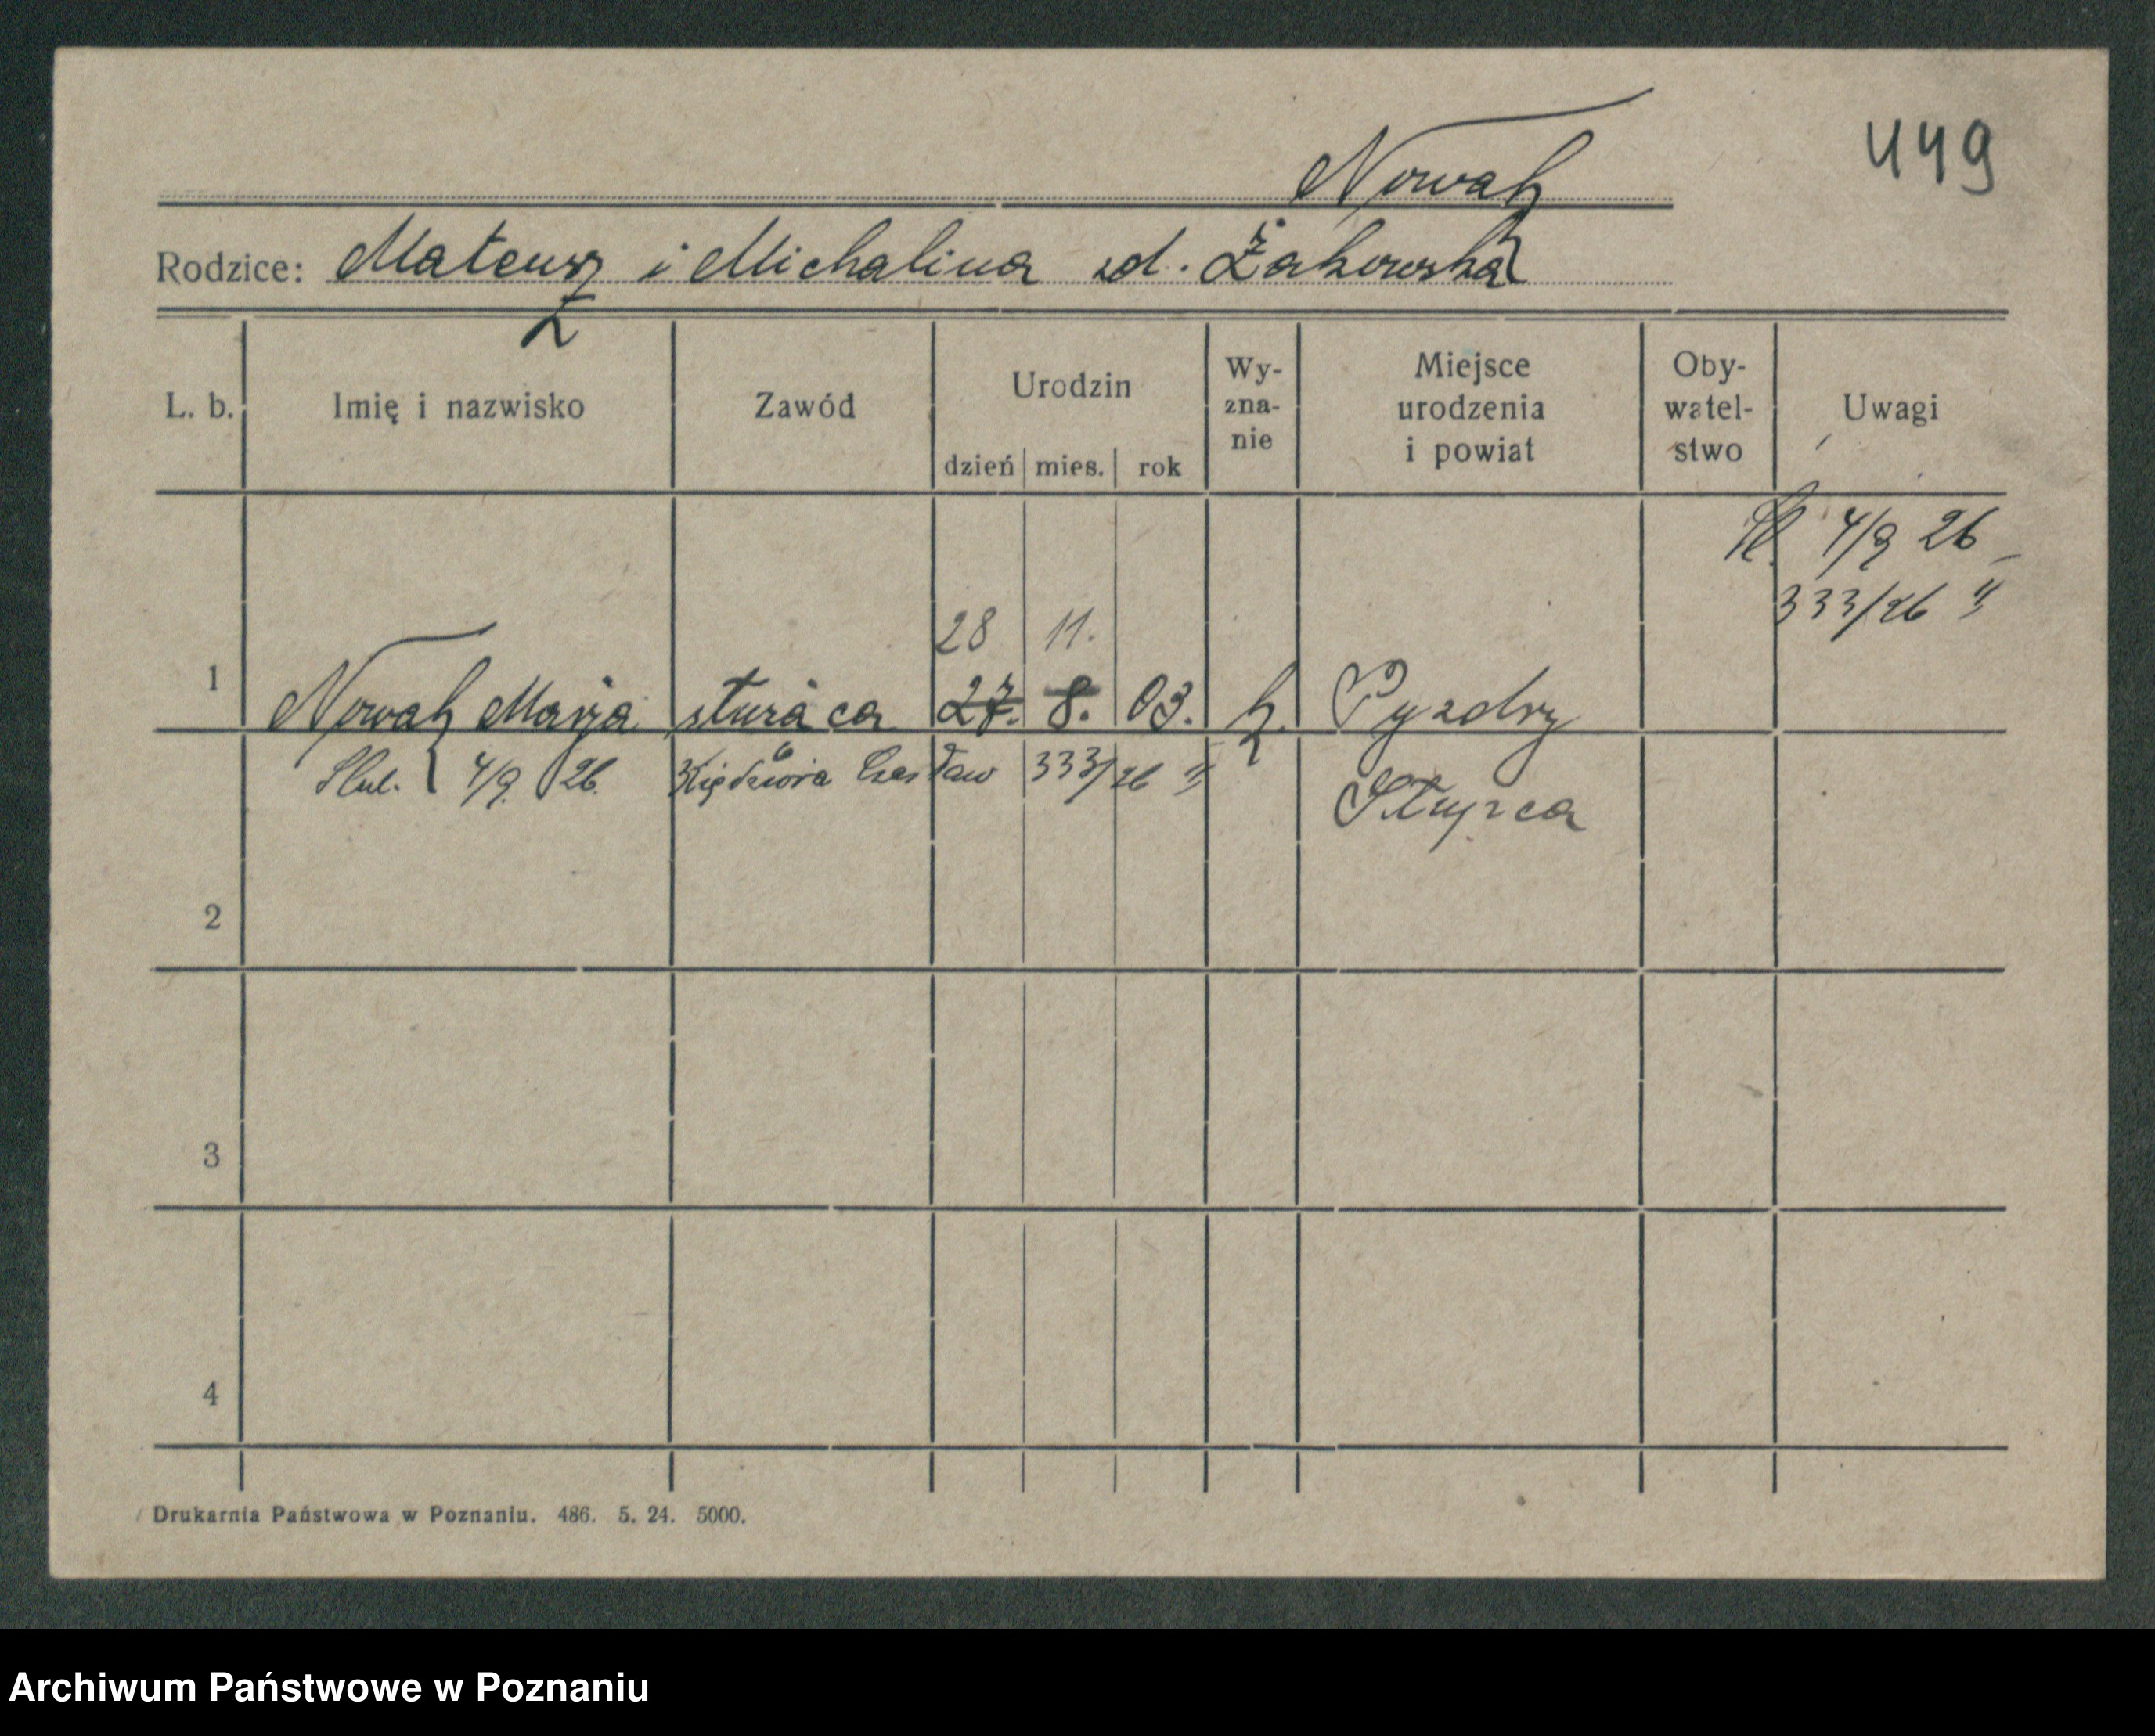 449
Nowak
Rodzice: Mateusz i Michalina zd. Żakowska
L. b. Imię i nazwisko Zawód Urodzin dzień mies. rok Wy-zna-nie Miejsce urodzenia i powiat Oby-watel-stwo Uwagi
4/9 26
333/26 II
28 11.
1 Nowak Marja służąca 27. 8. 03. k. Pyzdry
Słup. 4/9. 26. Czesław 333/26 II
Słupca
2
3
4
Drukarnia Państwowa w Poznaniu. 486. 5. 24. 5000.
Archiwum Państwowe w Poznaniu